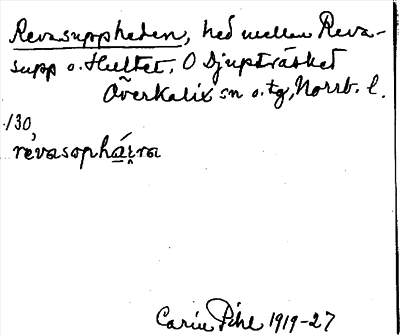 Revasuppheden, hed mellan Reva-
supp o. Hultet. O Djupträsket
Överkalix sn o. tg, Norrb. l.
130
révasophá̱i̯ra
Carin Pihl 1919-27